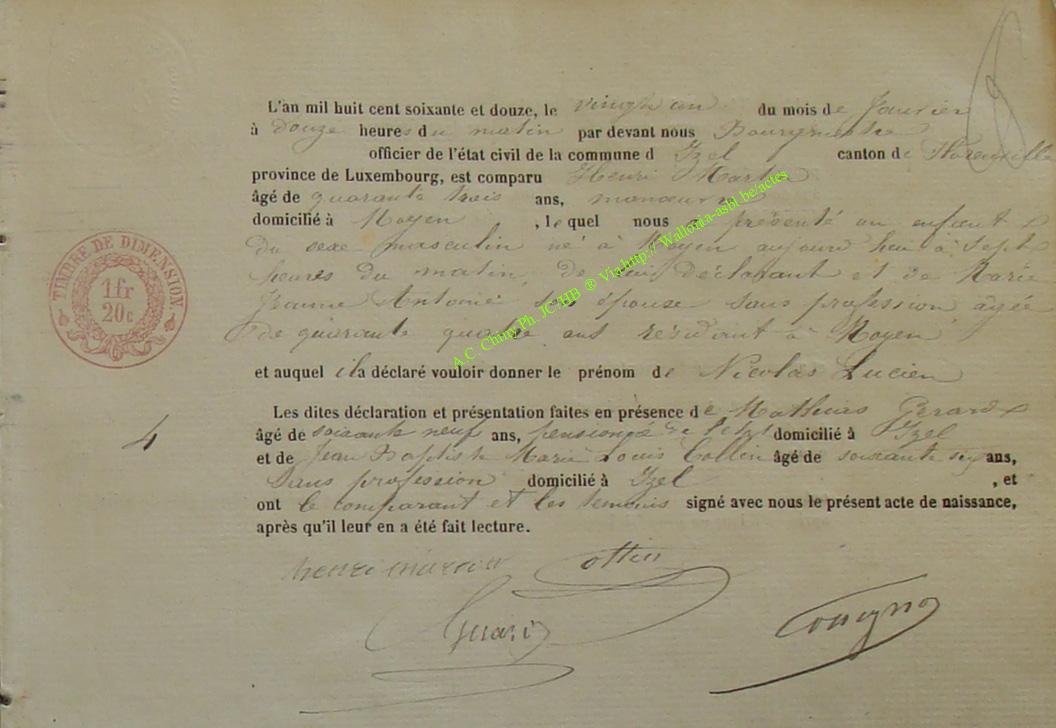 L'an mil huit cent soixante et douze, le vingt un du mois de Janvier
à douze heures du matin par devant nous Bourgmestre
officier de l'état civil de la commune d Izel canton de Florenville
province de Luxembourg, est comparu Henri Martin
âgé de quarante trois ans, manoeuvre
domicilié à Moyen, lequel nous a présenté un enfant
du sexe masculin né à Moyen aujourd'hui à sept
heures du matin, de lui déclarant et de Marie
Jeanne Antoine son épouse sans profession agée
de quarante quatre ans résidant à Moyen
et auquel il a déclaré vouloir donner le prénom de Nicolas Lucien
Les dites déclaration et présentation faites en présence de Mathias Gerard
âgé de soixante neuf ans, pensionné de l'etat domicilié à Izel
et de Jean Baptiste Marie Louis Collin âgé de soixante six ans,
sans profession domicilié à Izel, et
ont le comparant et les temoins signé avec nous le présent acte de naissance,
après qu'il leur en a été fait lecture.
henri martin Collin
Gerard
TIMBRE DE DIMENSION
1 fr
20c
4
A.C. Chiny Ph. JC HB ® Via http:// Wallonia-asbl.be/actes